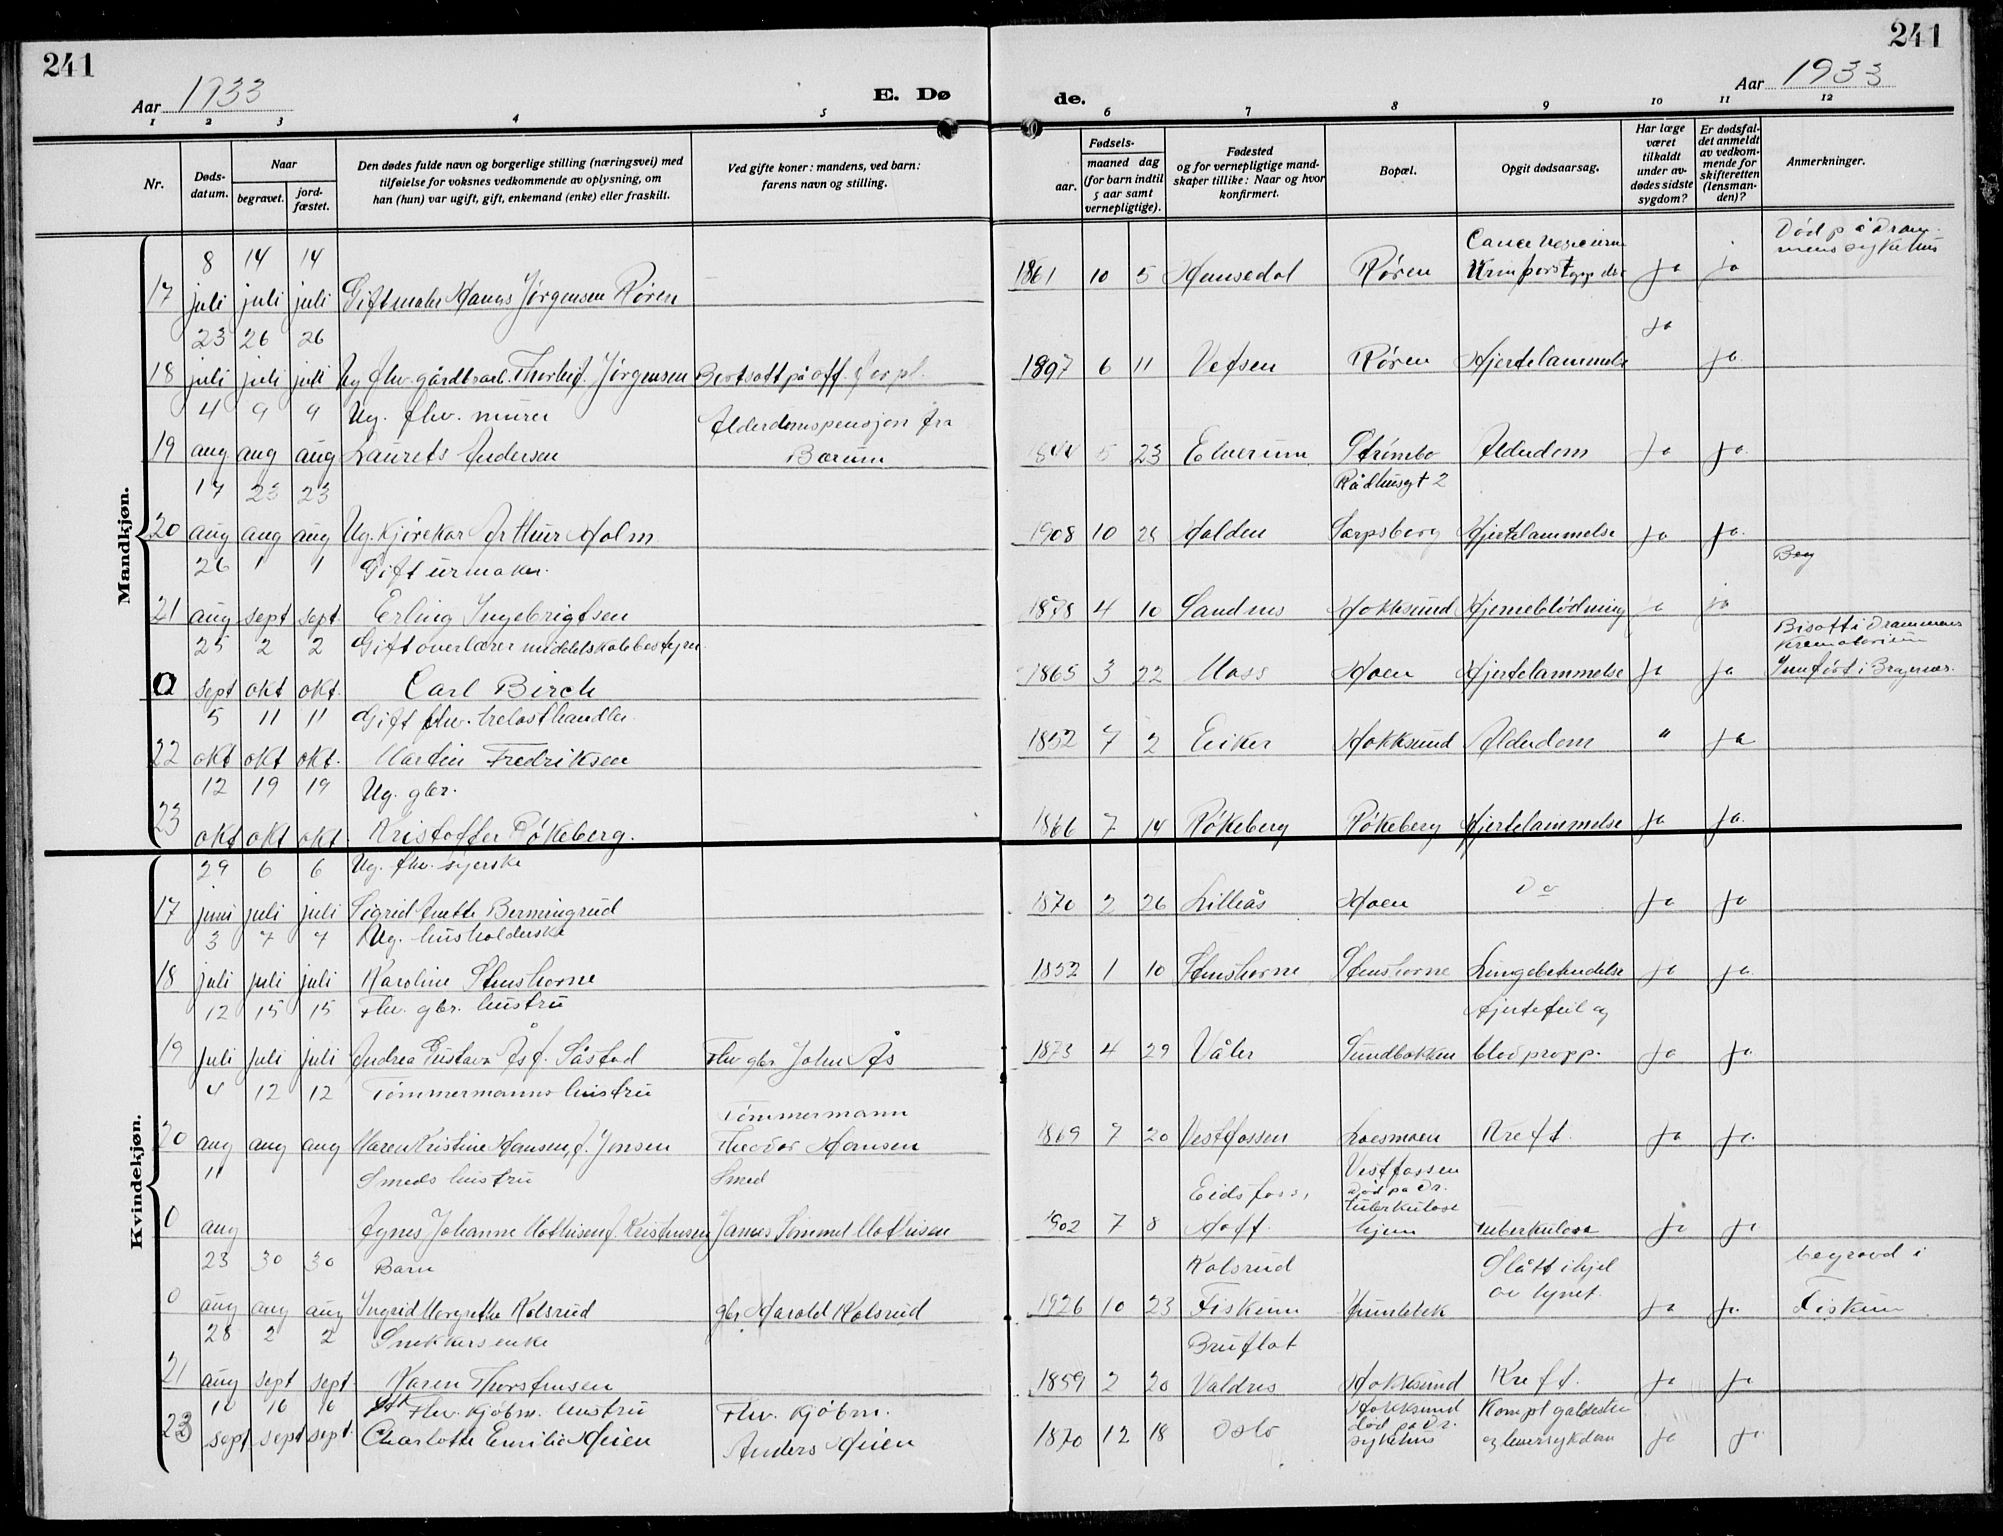 241
241
Aar 1933
E. Dø
de.
Aar 1933
1 2 3 4 5 6 7 8 9 10 11 12
Nr.
Døds-
datum.
Naar
begravet.
jord-
fæstet.
Den dødes fulde navn og borgerlige stilling (næringsvei) med
tilføielse for voksnes vedkommende av oplysning, om
han (hun) var ugift, gift, enkemand (enke) eller fraskilt.
Ved gifte koner: mandens, ved barn:
farens navn og stilling.
Fødsels-
aar.
maaned dag
(for barn indtil
5 aar samt
vernepligtige).
Fødested
og for vernepligtige mand-
skaper tillike: Naar og hvor
konfirmert.
Bopæl.
Opgit dødsaarsag.
Har læge
været
tilkaldt
under av-
dødes sidste
sygdom?
Er dødsfal-
det anmeldt
av vedkom-
mende for
skifteretten
(lensman-
den)?
Anmerkninger.
Mandkjøn.
8 14 14
Død på Dram-
mens sykehus
17 juli juli juli Jørgensen Røren 1861 10 5 Hemsedal Røren ja ja
23 26 26
18 juli juli juli Ug fhv. gårdbrarb. Jørgensen Bortsatt på off. forpl. 1897 6 11 Vefsen Røren Hjertelammelse ja ja
4 9 9 Ug. fhv. murer Alderdomspensjon fra
19 aug aug aug Laurets Andersen Bærum 1844 5 23 Elverum Strømbo Alderdom ja ja
17 23 23 Rådhusgt 2
20 aug aug aug Ug. Kjørekar Arthur Holm 1908 10 Halden Sarpsborg Hjertelammelse ja ja
26 1 1 Gift urmaker. Beg
21 aug sept sept. Erling Ingebrigtsen 1878 4 10 Sandnes Hokksund Hjerneblødning ja ja
25 2 2 Gift overlærer middelskolebestyrer Bisatt i Drammens
Krematorium
0 sept okt okt. Carl Birch 1865 3 22 Moss Hoen Hjertelammelse ja ja Innført i Bragernes.
5 11 11 Gift fhv. trelasthandler
22 okt okt okt. Martin Fredriksen 1852 7 2 Eiker Hokksund Alderdom " ja
12 19 19 Ug. gbr.
23 okt okt okt. Kristoffer Røkeberg. 1866 7 14 Røkeberg Røkeberg Hjertelammelse ja ja
Kvindekjøn.
29 6 6 Ug. fhv. syerske
17 juni juli juli Sigrid Anette Bermingrud 1870 2 26 Lilleås Hoen Do ja ja
3 7 7 Ug. husholderske
18 juli juli juli Karoline Stenshorne 1852 1 10 Stenshorne Stenshorne Lungebetendelse ja ja
12 15 15 Fhv. gbr. hustru Hjertefeil og
19 juli juli juli Andrea Gustava Ås f. Såstad Fhv gbr John Ås 1873 4 29 Våler Sundbakken blodpropp. ja ja
4 12 12 Tømmermanns hustru Tømmermann
20 aug aug aug Maren Kristine Hansen f. Jonsen Theodor Hansen 1869 7 20 Vestfossen Loesmoen Kreft. ja ja
11 Smeds hustru Smed Eidsfoss, Vestfossen
Død på Dr.
tuberkulose
0 aug Agnes Johanne Mathisen f. Kristensen 1902 7 8 Hoff hjem tuberkulose ja ja
23 30 30 Barn Kolsrud Slått ihjel begravd i
0 aug aug aug Ingrid Margrethe Kolsrud gbr Harald Kolsrud 1926 10 23 Fiskum av lynet. ja ja Fiskum
28 2 2 Snekkersenke Bruflat
21 aug sept sept. Karen Thorstensen 1859 2 20 Valdres Hokksund Kreft. ja ja
10 16 16 Fhv. kjøbm. hustru Fhv. kjøbm. Hokksund Kompl galdesten
23 sept sept sept. Charlotte Emilie Meien Anders Meien 1870 12 18 Oslo død på Dr. sykehus og leversykdom ja ja